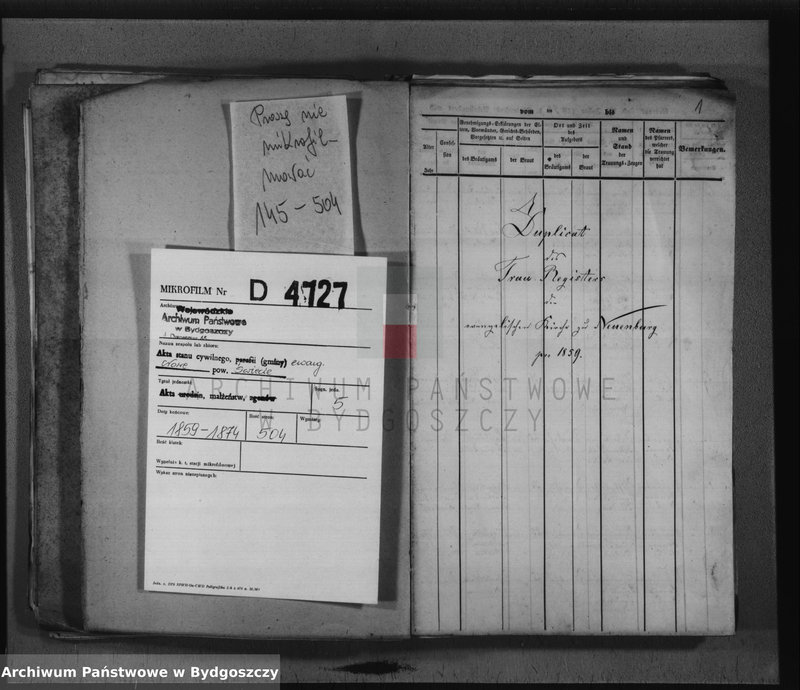 Proszę nie
mikrofil-
mować
145 – 504
MIKROFILM Nr D 4727
Archiwum
Wojewódzkie
Archiwum Państwowe
w Bydgoszczy
Nazwa zespołu lub zbioru:
Akta stanu cywilnego, parafii (gminy) ewang.
pow. Świecie
Tytuł jednostki
Sygn. jedn.
Akta urodzin, małżeństw, zgonów
5
Daty końcowe:
Ilość stron:
1859–1874
504
Ilość klatek:
Wypełnia k. t. stacji mikrofilmowej
Wykaz stron nieczytelnych:
1
vom bis
Genehmigungs-Erklärungen der El-
tern, Vormünder, Gerichts-Behörden,
Vorgesetzten u. auf Seiten
des Bräutigams
der Braut
Ort und Zeit
des
Aufgebots
des
Bräutigams
der
Braut
Namen
und
Stand
der
Trauungs-Zeugen
Namen
des Pfarrers,
welcher
die Trauung
verrichtet
hat
Bemerkungen.
Alter
Confes-
sion
Jahr
Duplicat
des
Trau-Registers
der
evangelischen Kirche zu Neuenburg
pro 1859.
ARCHIWUM PAŃSTWOWE
W BYDGOSZCZY
Archiwum Państwowe w Bydgoszczy